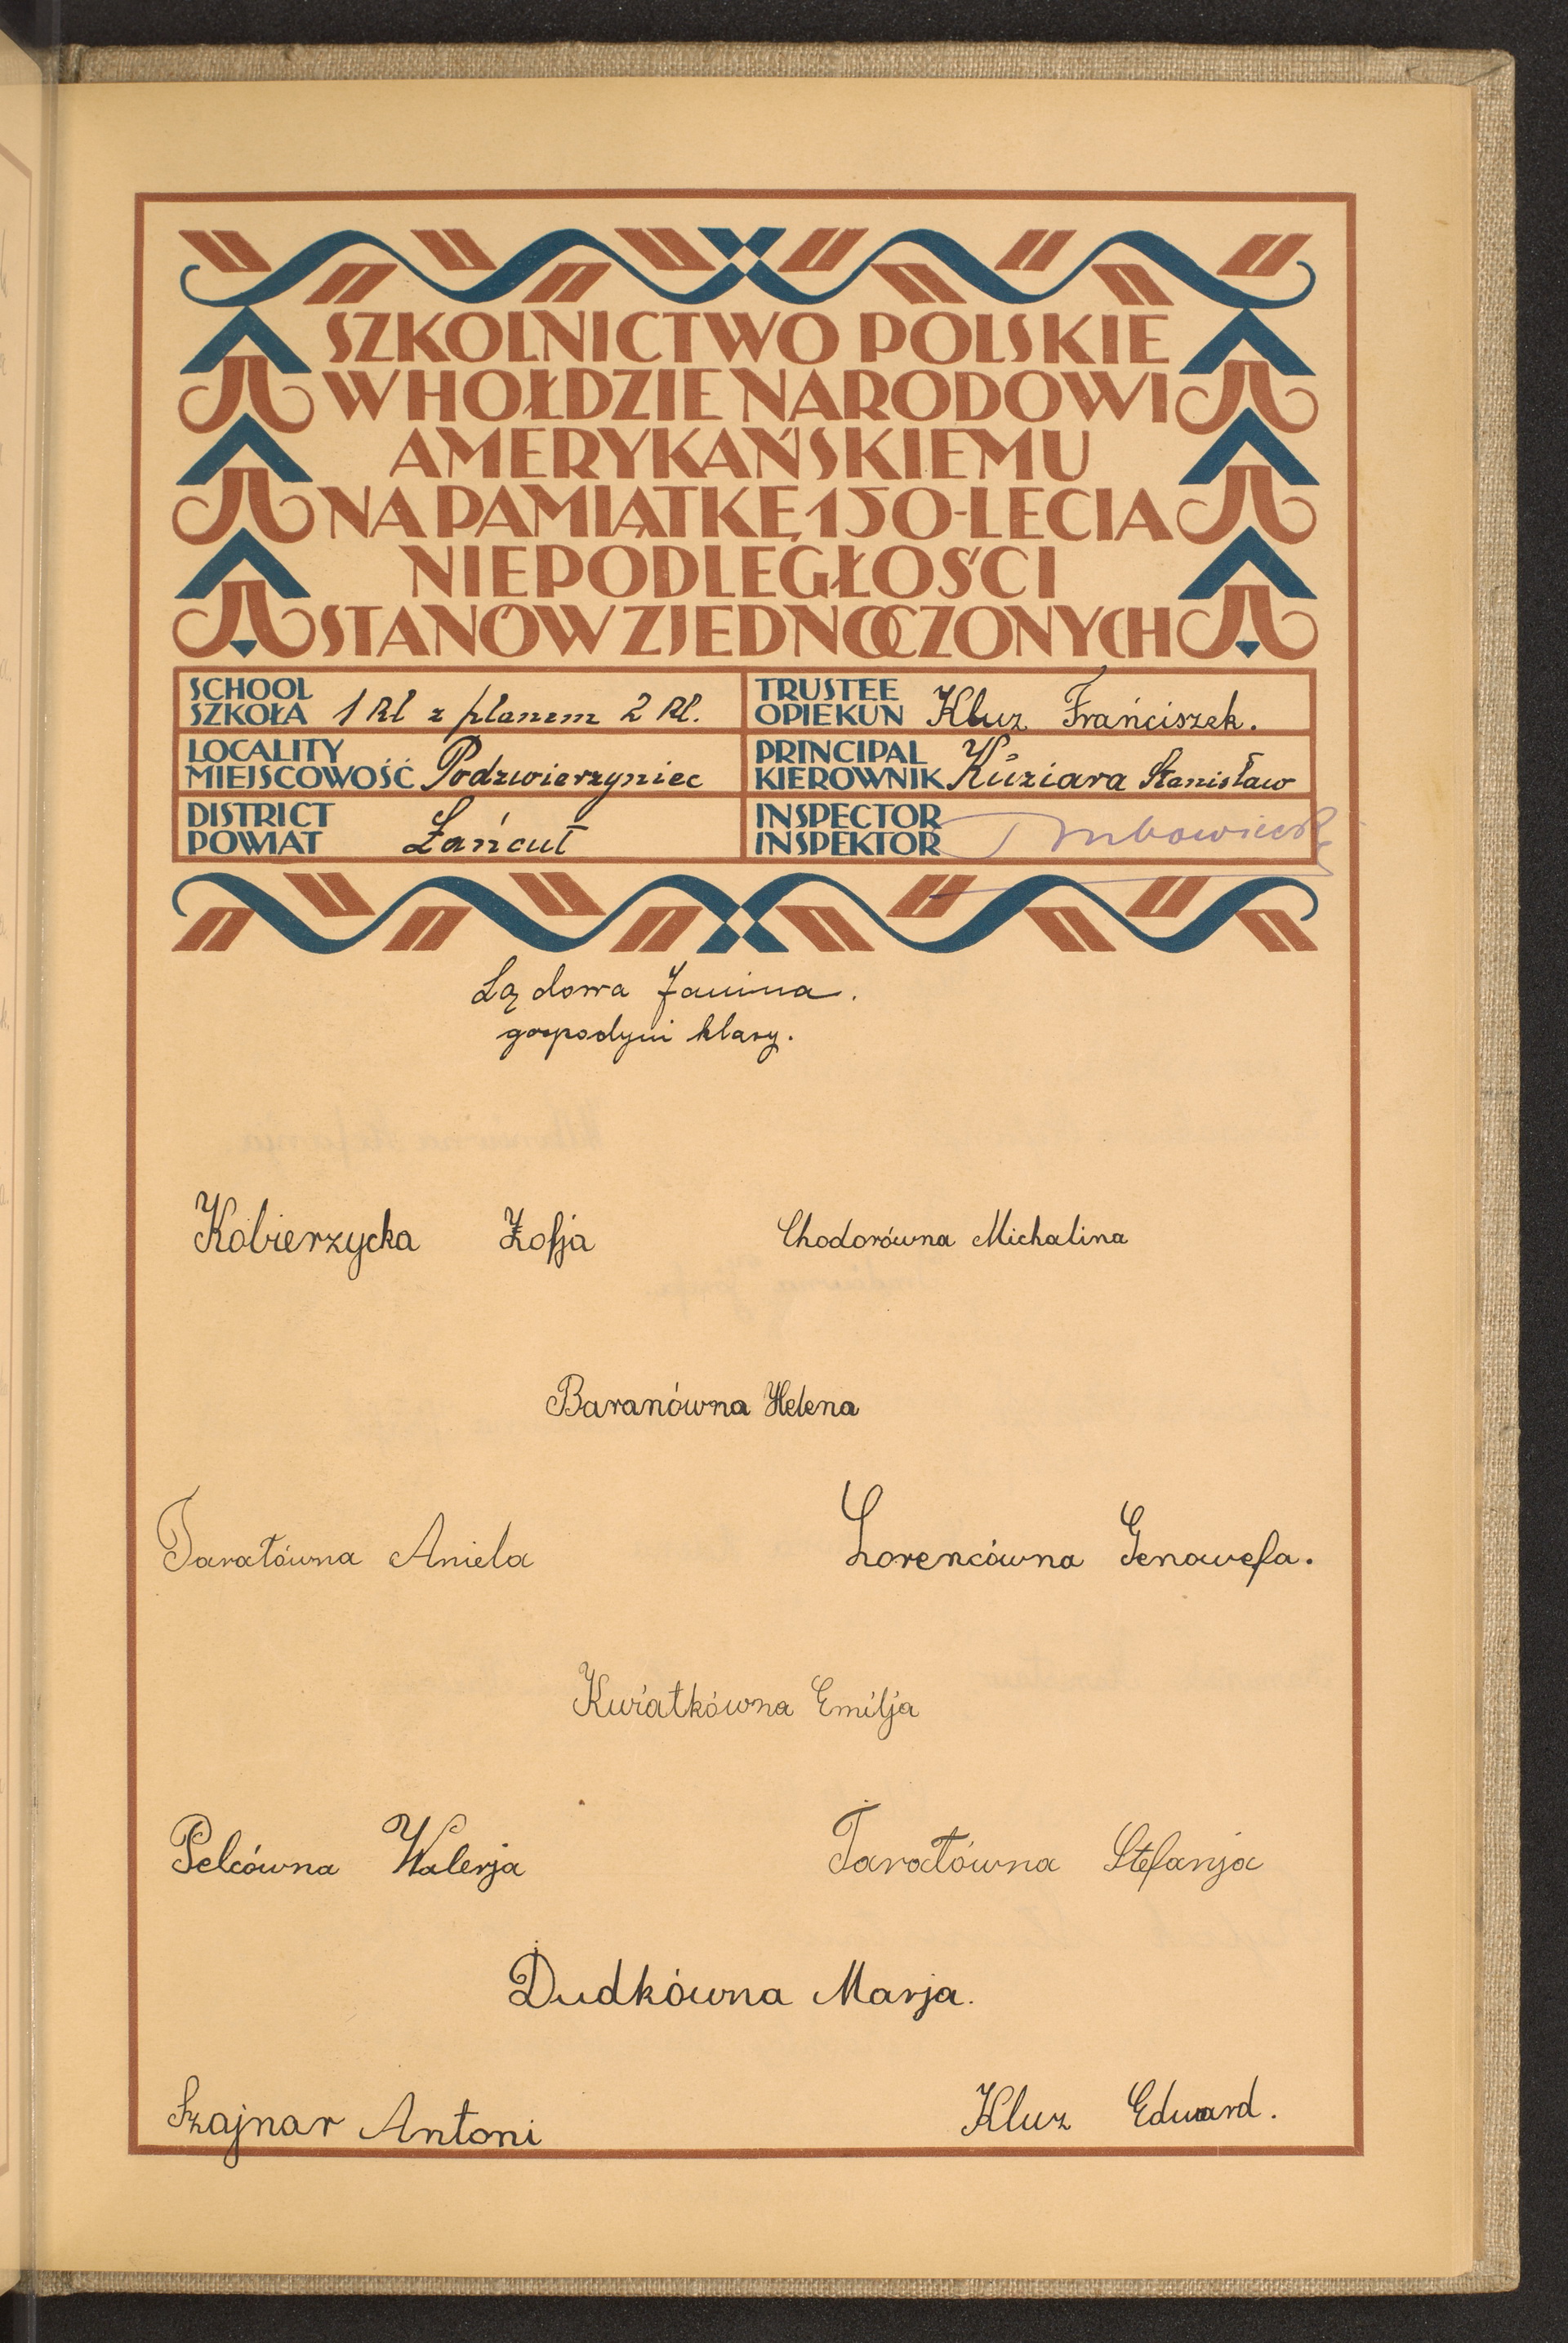 SZKOLNICTWO POLSKIE
W HOŁDZIE NARODOWI
AMERYKAŃSKIEMU
NA PAMIĄTKĘ 150-LECIA
NIEPODLEGŁOŚCI
STANÓW ZJEDNOCZONYCH
SCHOOL
SZKOŁA 1 Kl z planem 2 Kl.
TRUSTEE
OPIEKUN Kluz Frańciszek.
LOCALITY
MIEJSCOWOŚĆ Podzwierzyniec
PRINCIPAL
KIEROWNIK Kuziara Stanisław
DISTRICT
POWIAT Łańcut
INSPECTOR
INSPEKTOR
Lądowa Janina.
gospodyni klasy.
Kobierzycka Zofja Chodorówna Michalina
Baranówna Helena
Taratówna Aniela Lorencówna Genowefa.
Kwiatkówna Emilja
Pelcówna Walerja Taratówna Stefanja
Dudkówna Marja.
Szajnar Antoni Kluz Edward.